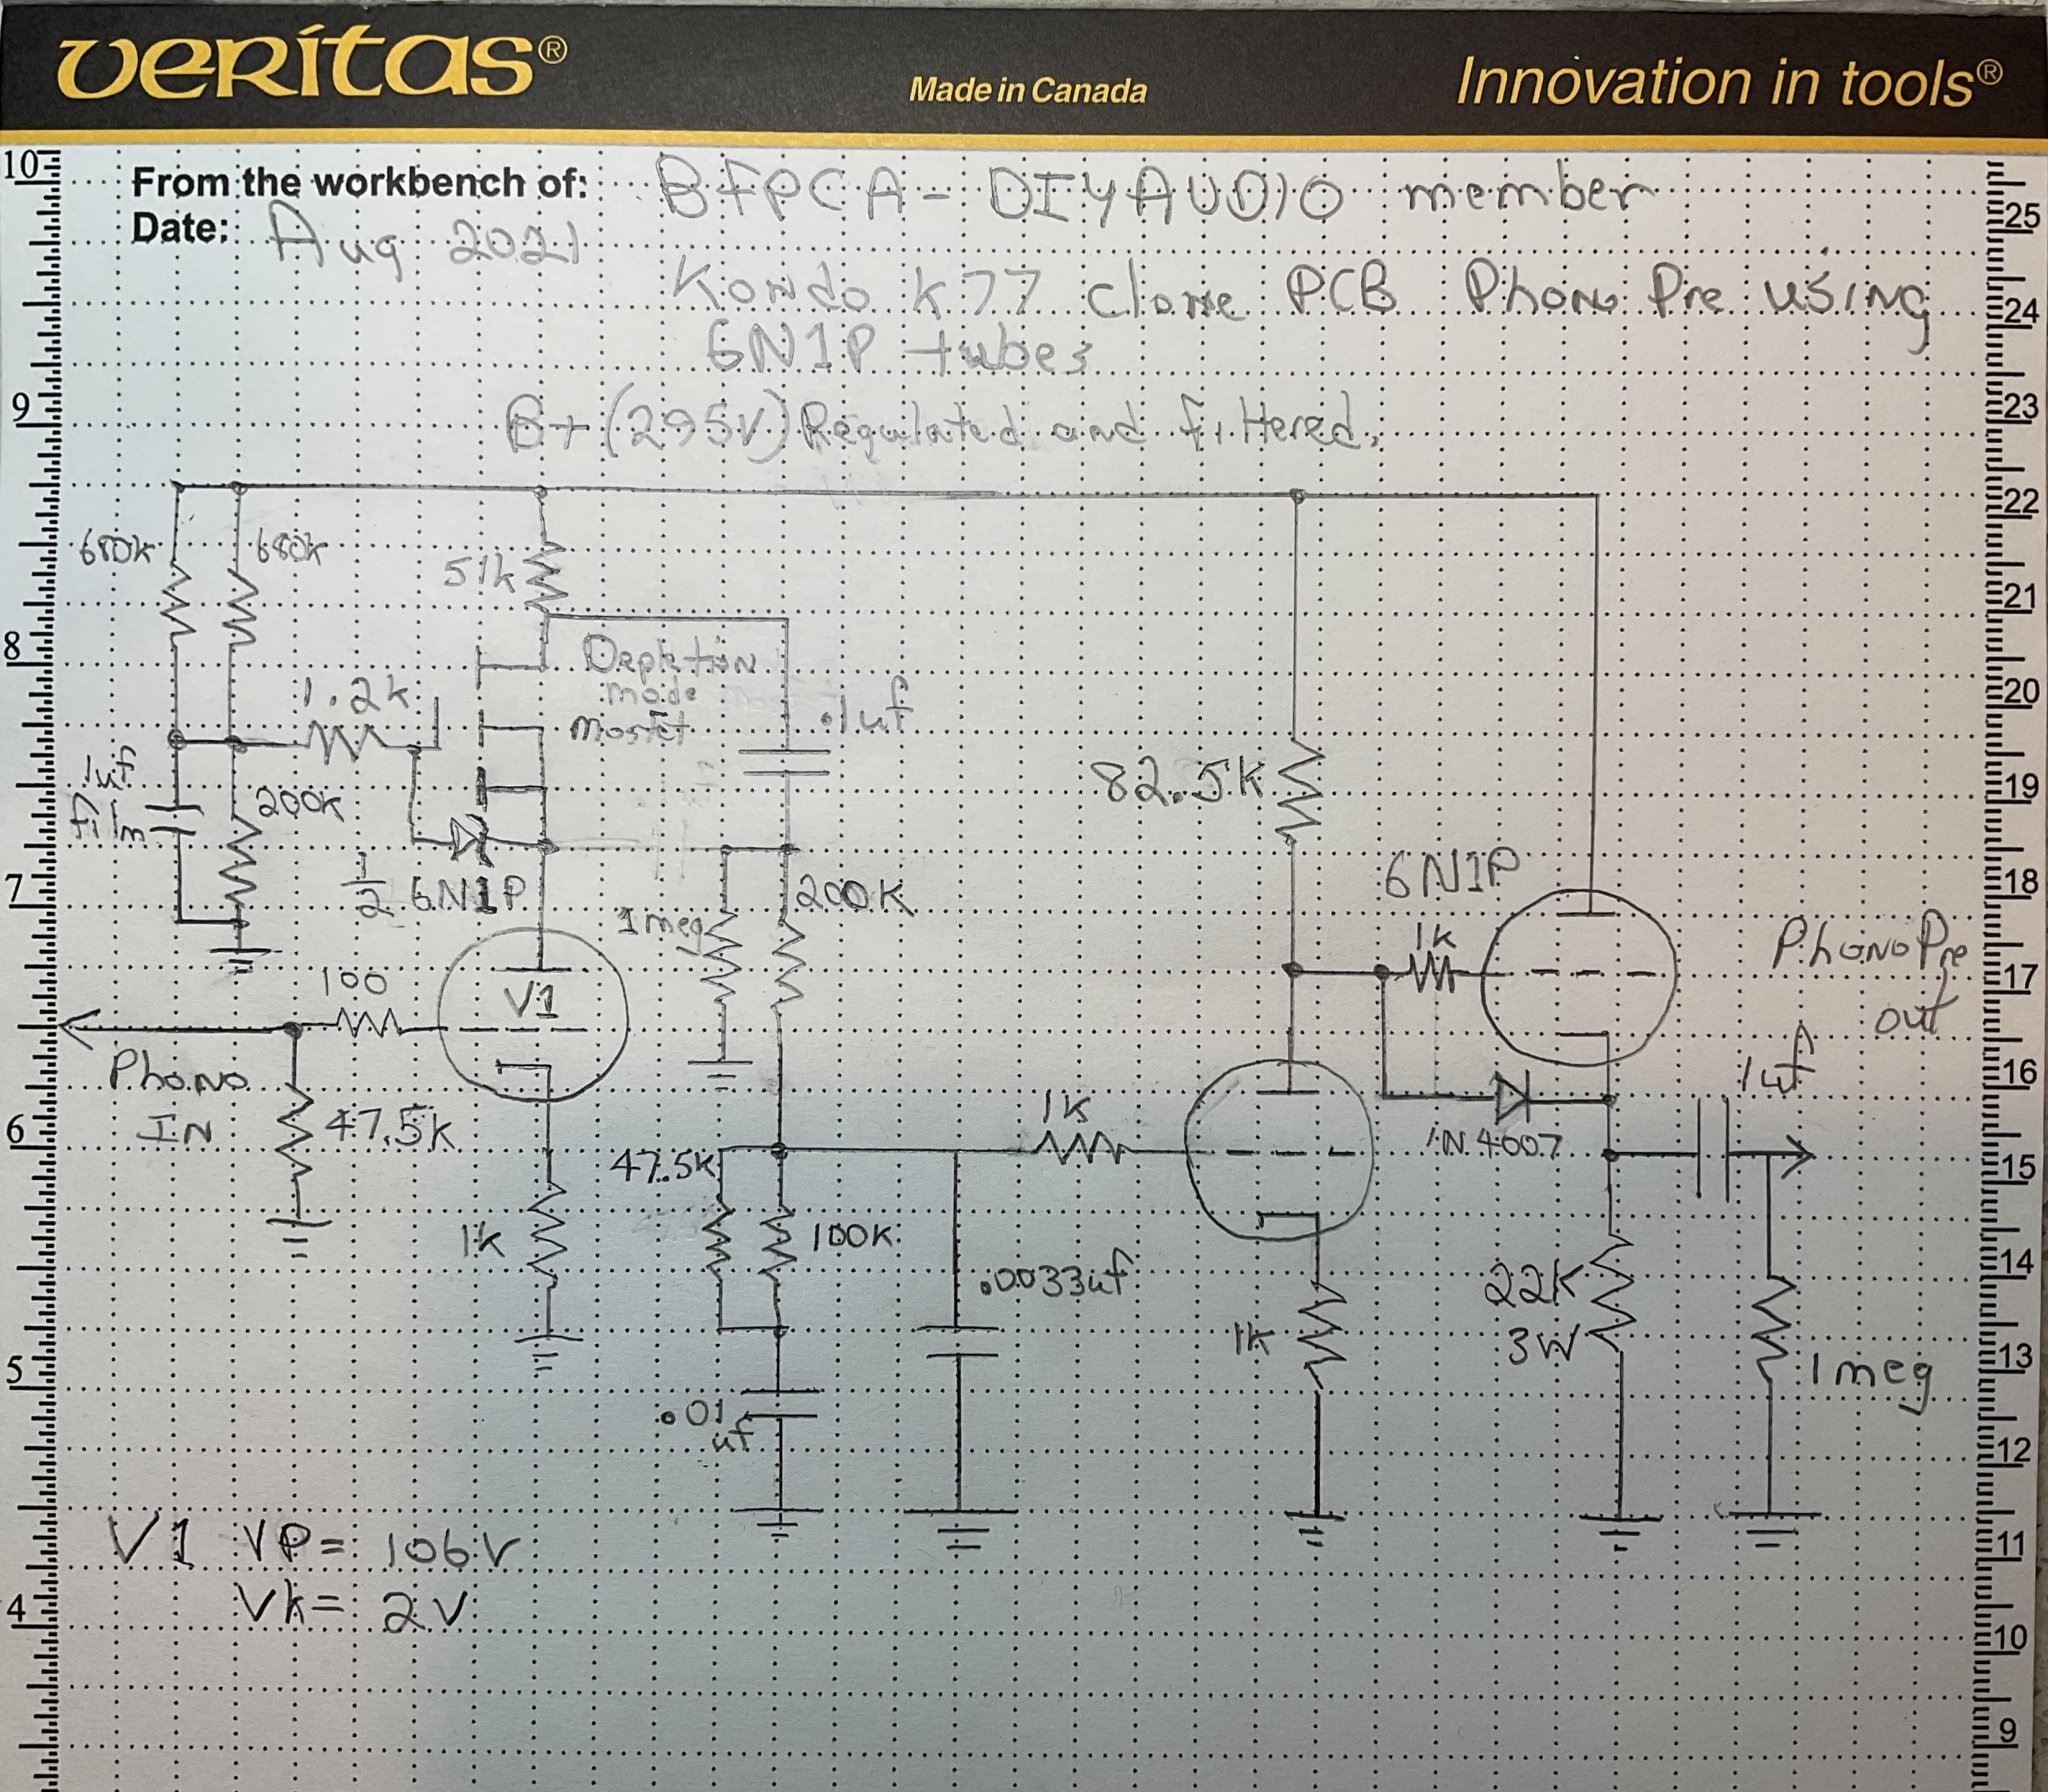 veritas®
Made in Canada
Innovation in tools®
From the workbench of: BFPCA - DIYAUDIO member
Date: Aug 2021
Kondo k77 clone PCB Phono Pre using
6N1P tubes
B+ (295V) Regulated and filtered.
680k
680k
51k
Depletion
mode
Mosfet
1.2k
.1uf
1uf
film
200k
82.5k
1/2 6N1P
1meg
200K
6N1P
1k
Phono Pre
out
100
V1
Phono
IN
47.5k
1uf
1k
1N4007
47.5k
1k
100k
.0033uf
1k
22k
3W
1meg
.01
uf
V1 VP= 106V
Vk= 2V
10
9
8
7
6
5
4
25
24
23
22
21
20
19
18
17
16
15
14
13
12
11
10
9